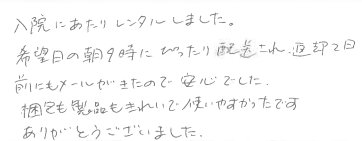 入院にあたりレンタルしました。
希望日の朝9時にぴったり配送され、返却2日
前にもメールがきたので安心でした。
梱包も製品もきれいで使いやすかったです
ありがとうございました.